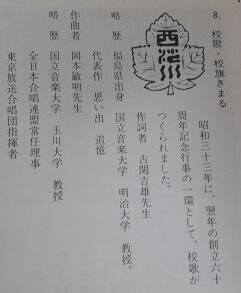 8. 校歌・校旗きまる
昭和三十三年に、翌年の創立六十
周年記念行事の一環として、校歌が
つくられました。
作詞者 古関吉雄先生
略歴 福島県出身 国立音楽大学 明治大学 教授。
代表作 思い出 追憶
作曲者 岡本敏明先生
略歴 国立音楽大学 玉川大学 教授
全日本合唱連盟常任理事
東京放送合唱団指揮者